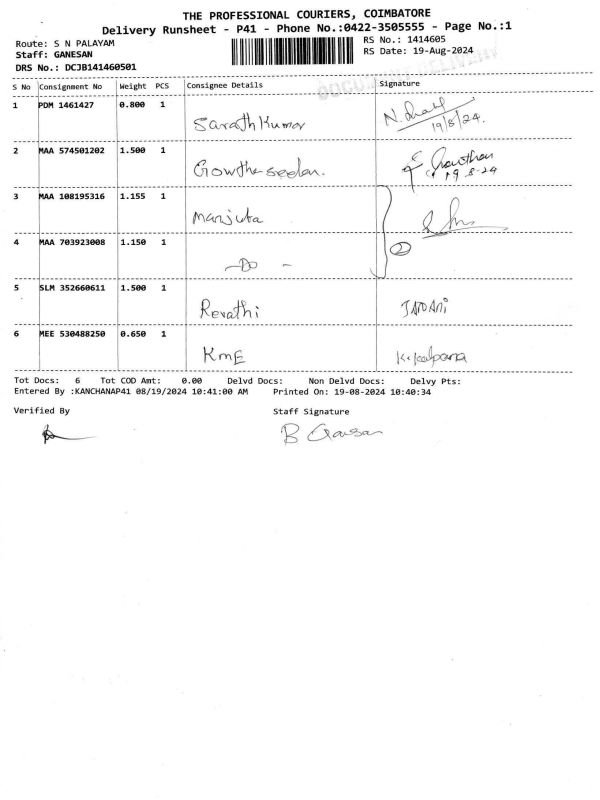 THE PROFESSIONAL COURIERS, COIMBATORE
Delivery Runsheet - P41 - Phone No.:0422-3505555 - Page No.:1
Route: S N PALAYAM RS No.: 1414605
Staff: GANESAN RS Date: 19-Aug-2024
DRS No.: DCJB141460501
S No Consignment No Weight PCS Consignee Details Signature
1 PDM 1461427 0.800 1
Sarath Kumar
19/8/24.
2 MAA 574501202 1.500 1
19-8-24
3 MAA 108195316 1.155 1
Manjuta
4 MAA 703923008 1.150 1
2
-Do-
5 SLM 352660611 1.500 1
Revathi
6 MEE 530488250 0.650 1
KmE K. Kalpana
Tot Docs: 6 Tot COD Amt: 0.00 Delvd Docs: Non Delvd Docs: Delvy Pts:
Entered By :KANCHANAP41 08/19/2024 10:41:00 AM Printed On: 19-08-2024 10:40:34
Verified By Staff Signature